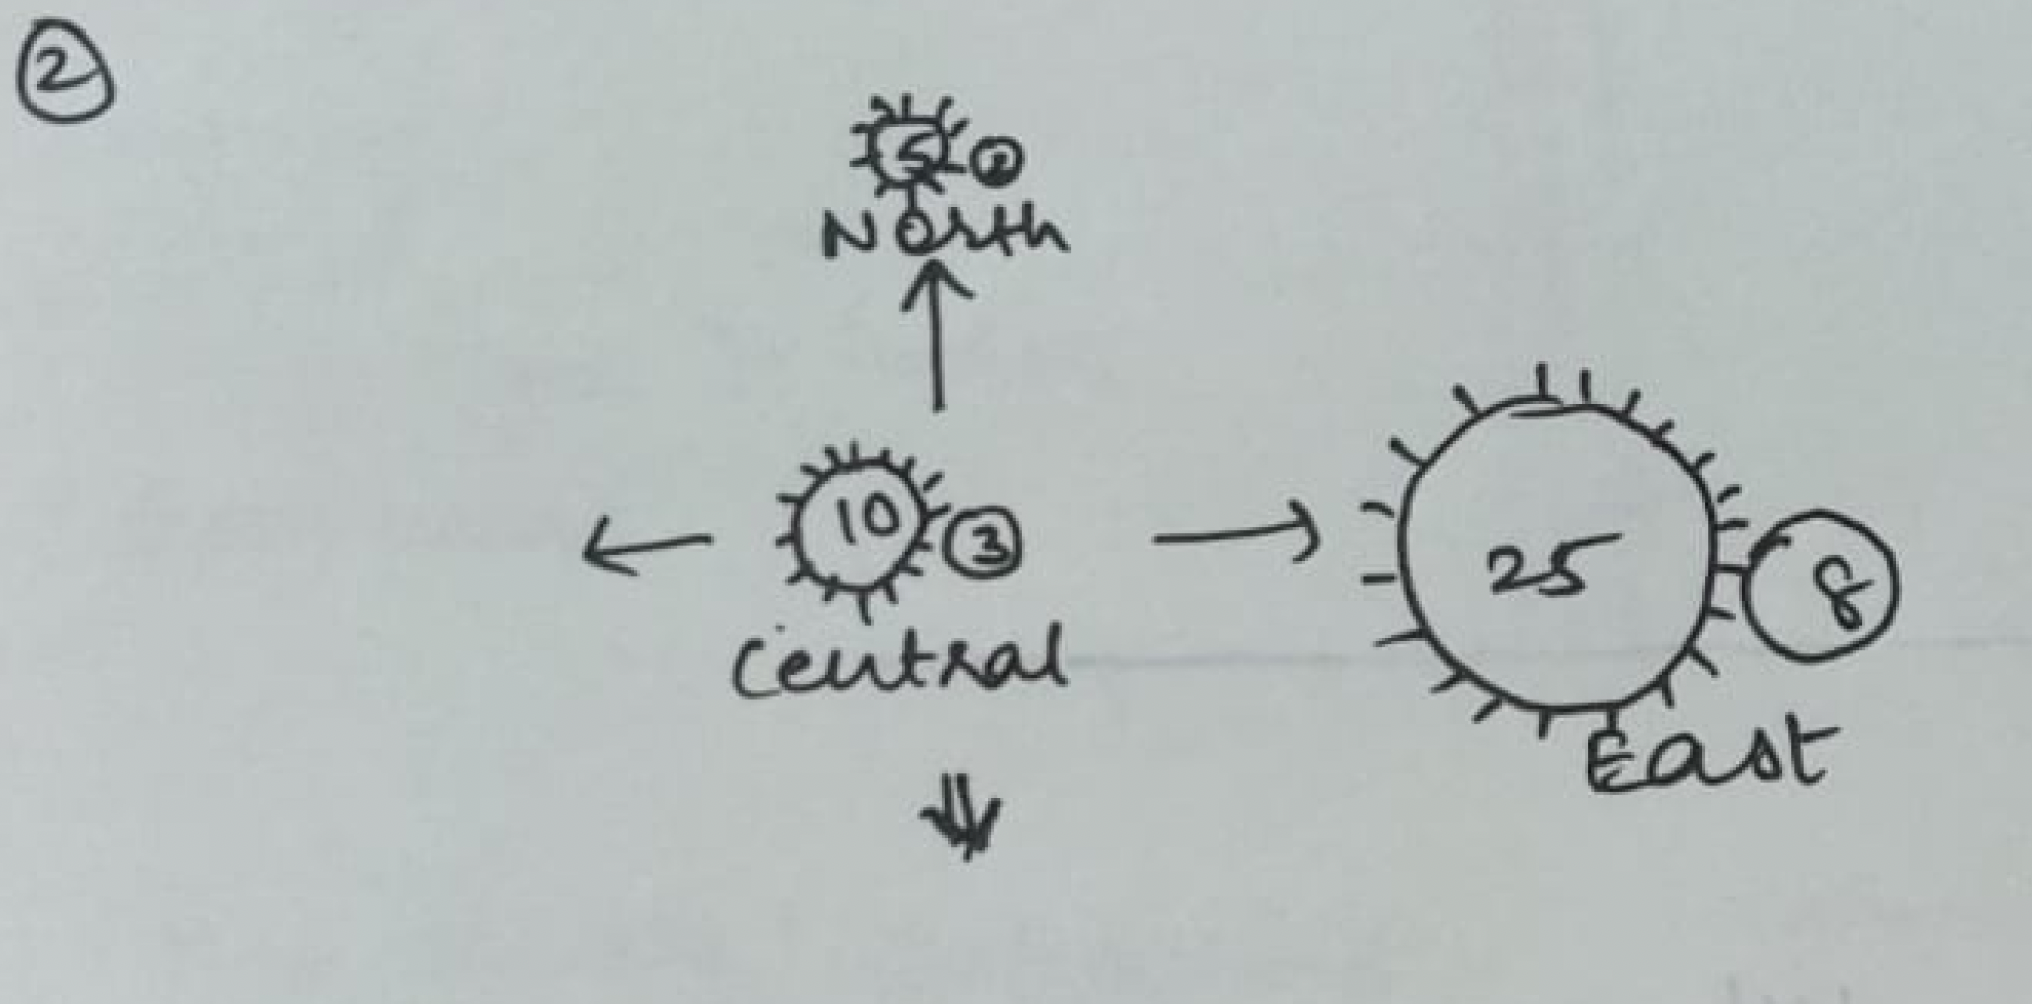 2
5 2
North
10 3
Central
25 8
East